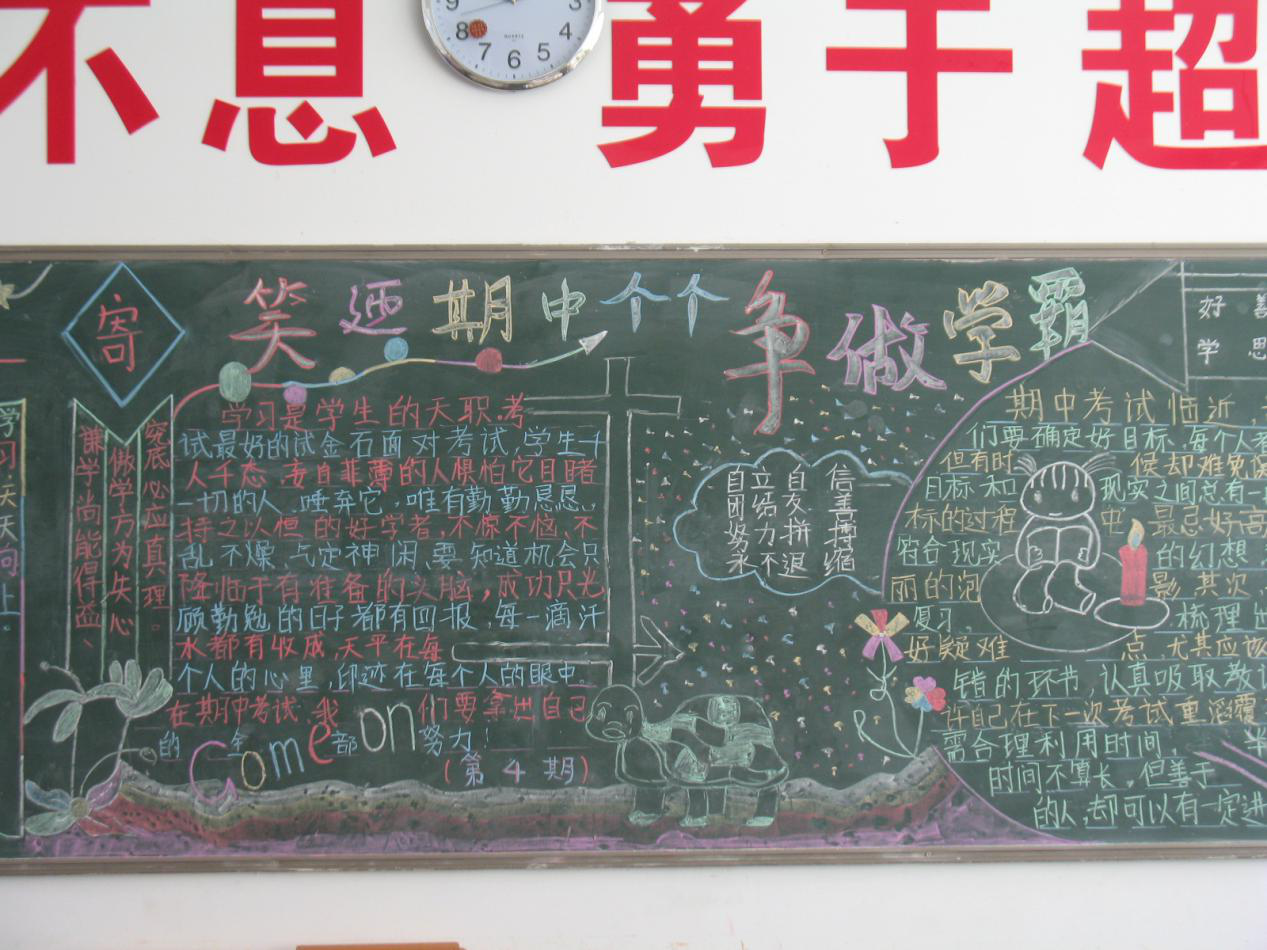 不息 勇于超
9 8 7 6 5 4 3
笑迎期中个个争做学霸
寄
谦学尚能得益、
傲学方为失心
究底必应真理。
学习天天向上。
学习是学生的天职,考
试最好的试金石面对考试,学生千
人千态,妄自菲薄的人惧怕它目睹
一切的人,唾弃它,唯有勤勤恳恳、
持之以恒的好学者,不惊不恼、不
乱不燥,气定神闲,要知道机会只
降临于有准备的头脑,成功只光
顾勤勉的日子都有回报,每一滴汗
水都有收成,天平在每
个人的心里,印迹在每个人的眼中。
在期中考试,我们要拿出自己
的全部努力!
Come on
(第4期)
自立自信
团结友善
努力拼搏
永不退缩
好 善
学 思
期中考试临近,
们要确定好目标,每个人都
但有时候却难免
目标和现实之间总有一
标的过程中,最忌好高
符合现实的幻想,
丽的泡影,其次
复习,梳理
好疑难点,尤其应该
错的环节,认真吸取教训
许自己在下一次考试重蹈覆
需合理利用时间,半
时间不算长,但善于
的人,却可以有一定进